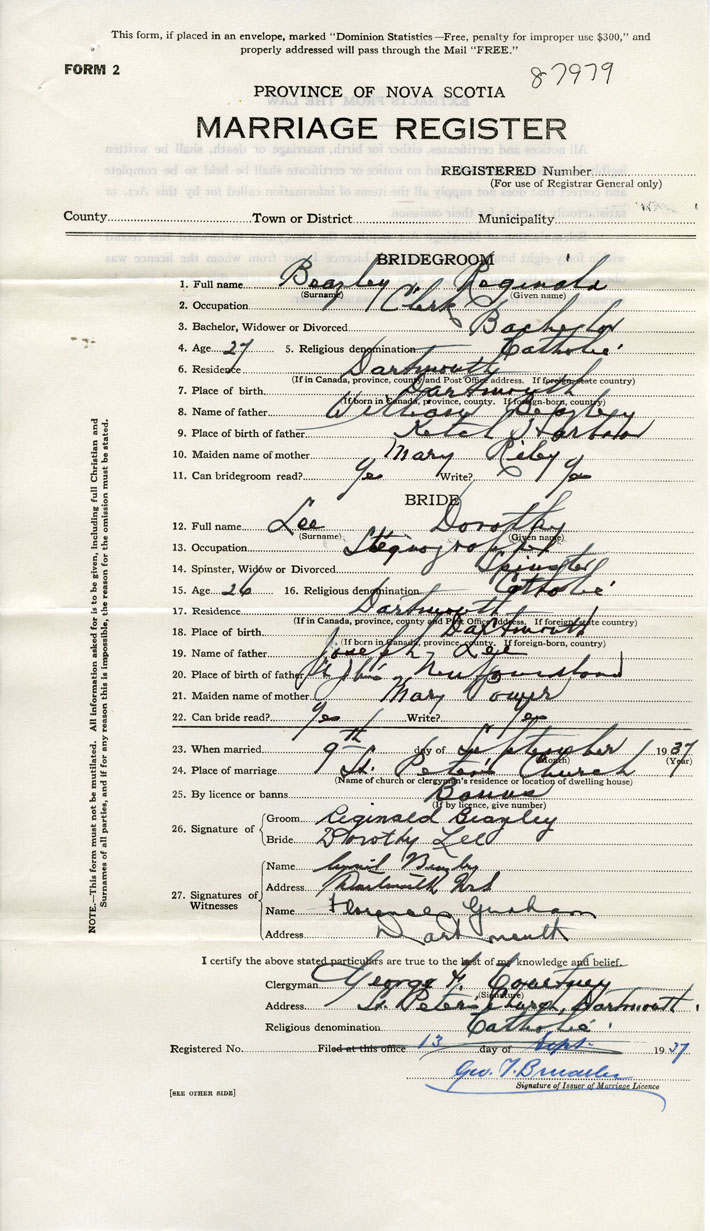 This form, if placed in an envelope, marked "Dominion Statistics—Free, penalty for improper use $300," and
properly addressed will pass through the Mail "FREE."
FORM 2
87979
PROVINCE OF NOVA SCOTIA
MARRIAGE REGISTER
REGISTERED Number
(For use of Registrar General only)
County Town or District Municipality
BRIDEGROOM
1. Full name Beazley Reginald
(Surname) (Given name)
2. Occupation Clerk
3. Bachelor, Widower or Divorced Bachelor
4. Age 27 5. Religious denomination Catholic
6. Residence Dartmouth
(If in Canada, province, county and Post Office address. If foreign, state country)
7. Place of birth Dartmouth
(If born in Canada, province, county. If foreign-born, country)
8. Name of father William Beazley
9. Place of birth of father Ketch Harbor
10. Maiden name of mother Mary Riley
11. Can bridegroom read? Yes Write? Yes
BRIDE
12. Full name Lee Dorothy
(Surname) (Given name)
13. Occupation Stenographer
14. Spinster, Widow or Divorced Spinster
15. Age 26 16. Religious denomination Catholic
17. Residence Dartmouth
(If in Canada, province, county and Post Office address. If foreign state country)
18. Place of birth Dartmouth
(If born in Canada, province, county. If foreign-born, country)
19. Name of father Joseph Lee
20. Place of birth of father St. John's Newfoundland
21. Maiden name of mother Mary Power
22. Can bride read? Yes Write? Yes
23. When married 9th day of September 1937
(Month) (Year)
24. Place of marriage St. Peter's Church
(Name of church or clergyman's residence or location of dwelling house)
25. By licence or banns Banns
(If by licence, give number)
26. Signature of
Groom Reginald Beazley
Bride Dorothy Lee
27. Signatures of Witnesses
Name Beazley
Address Dartmouth N.S.
Name Florence Graham
Address Dartmouth
I certify the above stated particulars are true to the best of my knowledge and belief.
Clergyman George F. Courtney
(Signature)
Address St. Peter's Church, Dartmouth
Religious denomination Catholic
Registered No. Filed at this office 13 day of Sept. 1937
Geo. T.
Signature of Issuer of Marriage Licence
[SEE OTHER SIDE]
NOTE.—This form must not be mutilated. All information asked for is to be given, including full Christian and
Surnames of all parties, and if for any reason this is impossible, the reason for the omission must be stated.